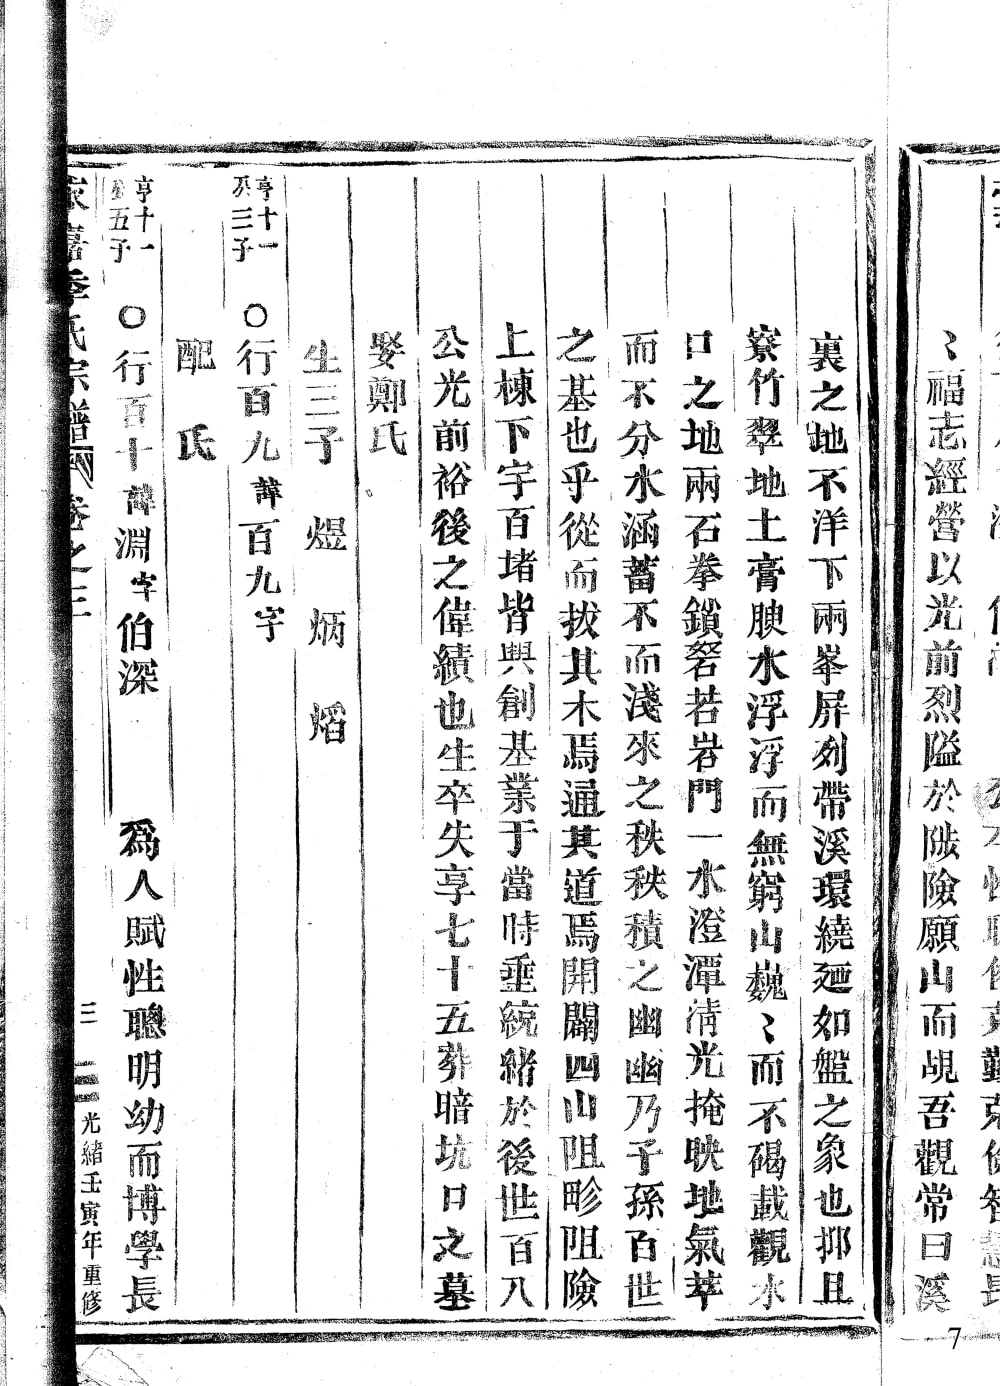 〻福志經營以光前烈隘於陟險願山而覘吾觀常曰溪
裏之地不洋下兩峯屏列帶溪環繞廻如盤之象也抑且
寮竹翠地土膏腴水浮浮而無窮山巍〻而不碣載觀水
口之地兩石拳鎖砮若岩門一水澄潭清光掩映地氣萃
而不分水涵蓄不而淺來之秩秩積之幽幽乃子孫百世
之基也乎從而拔其木焉通其道焉開闢四山阻畛阻險
上棟下宇百堵皆興創基業于當時垂統緒於後世百八
公光前裕後之偉績也生卒失享七十五葬暗坑口之墓
娶鄭氏
生三子 煜 炳 熖
亨十一
三子
○行百九諱百九字
配 氏
亨十一
五子
○行百十諱淵字伯深 爲人賦性聰明幼而博學長
嘉季氏宗譜 卷之三
三
光緒壬寅年重修
7